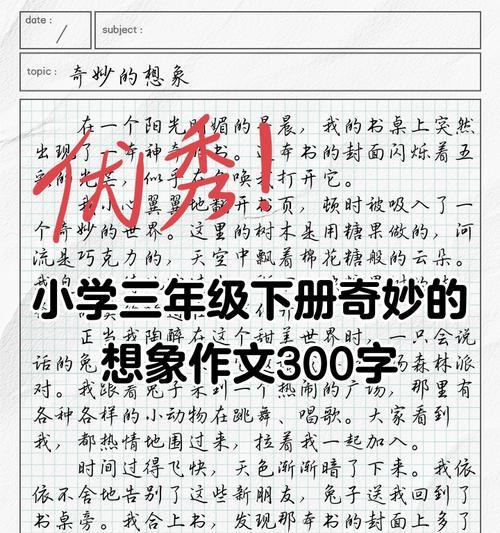 date :
subject :
topic : 奇妙的想象
在一个阳光明媚的早晨，我的书桌上突然
出现了一本神奇的书。这本书的封面闪烁着五
的光芒，似乎在召唤我打开它。
我小心翼翼地翻开书页，顿时被吸入了一
个奇妙的世界。这里的树木是用糖果做的，河
流是巧克力的，天空中飘着棉花糖般的云朵。
优秀!
小学三年级下册奇妙的
想象作文300字
正当我陶醉在这个甜美世界时，一只会说
话的兔 森林派
对。我跟着兔子来到一个热闹的广场，那里有
各种各样的小动物在跳舞、唱歌。大家看到
我，都热情地围过来，拉着我一起加入。
时间过得飞快，天色渐渐暗了下来。我依
依不舍地告别了这些新朋友，兔子送我回到了
书桌旁。我合上书，发现那本书的封面上多了